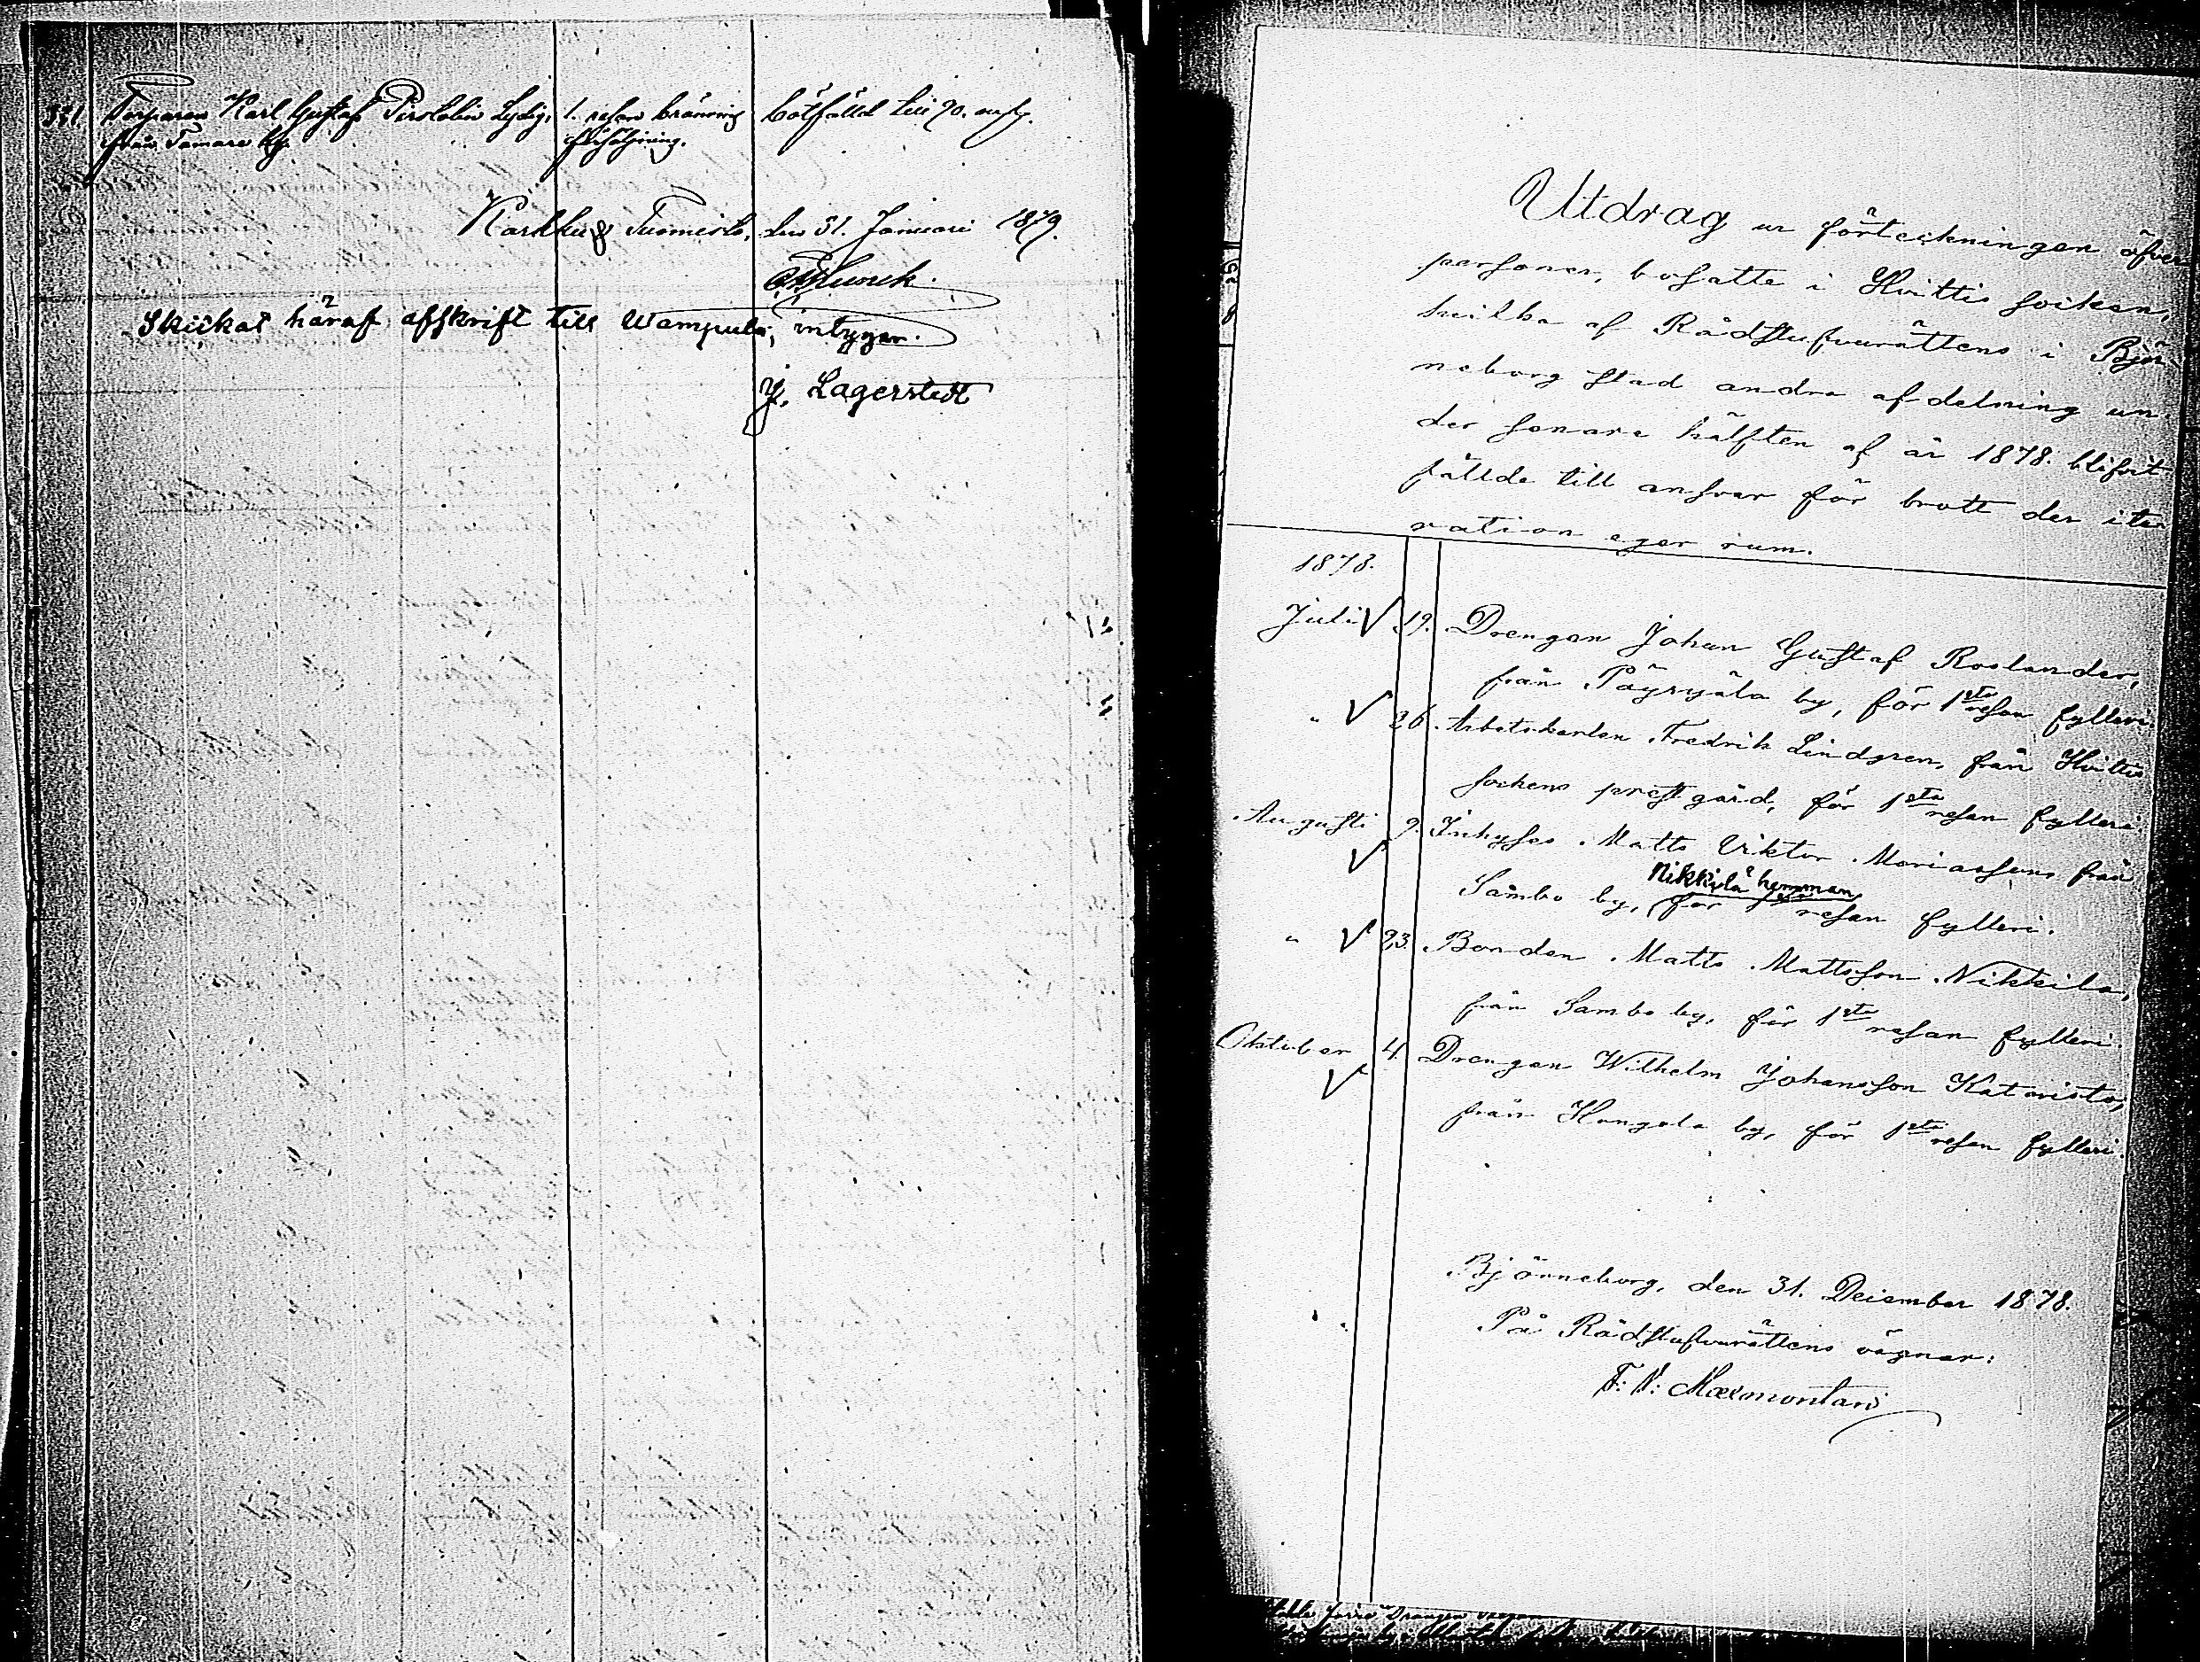 351. Torparen Karl Gustaf Lydig, 1. resan bränvins bötfälld till 90. mk
från Tamare by. försäljning.
Karkku & Tuomisto, den 31. Januari 1879.
Skickat häraf afskrift till Wampula, intygar.
J. Lagerstedt
Utdrag ur förteckningen öfver
personer, bosatte i Hvittis socken,
hvilka af Rådstufvurättens i Björ-
neborg stad andra afdelning un-
der senare hälften af år 1878. blifvit
fällde till ansvar för brott der ite-
ration eger rum.
1878.
Juli V 19. Drengen Johan Gustaf Roslander,
från Päyryälä by, för 1sta resan fylleri.
" V 26. Arbetskarlen Fredrik Lindgren, från Hvittis
sockens prestgård, för 1sta resan fylleri.
Augusti 9. Inhyses Matts Viktor Mariasson från
V Nikkilä hemman
Sambo by, för 1sta resan fylleri.
" V 23. Bonden Matts Mattsson Nikkila,
från Sambo by, för 1sta resan fylleri.
Oktober 4. Drengen Wilhelm Johansson Katavisto,
V från Hungola by, för 1sta resan fylleri.
Björneborg, den 31. December 1878.
På Rådstufvurättens vägnar: